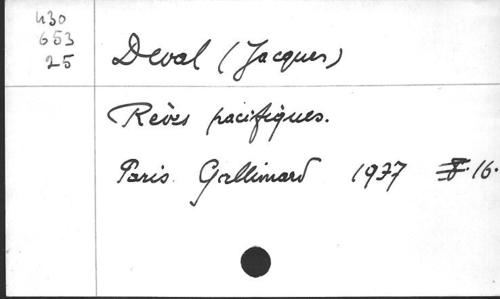 430
653
25
Deval (Jacques)
Rives pacifiques.
Paris Gallimard 1937 16.